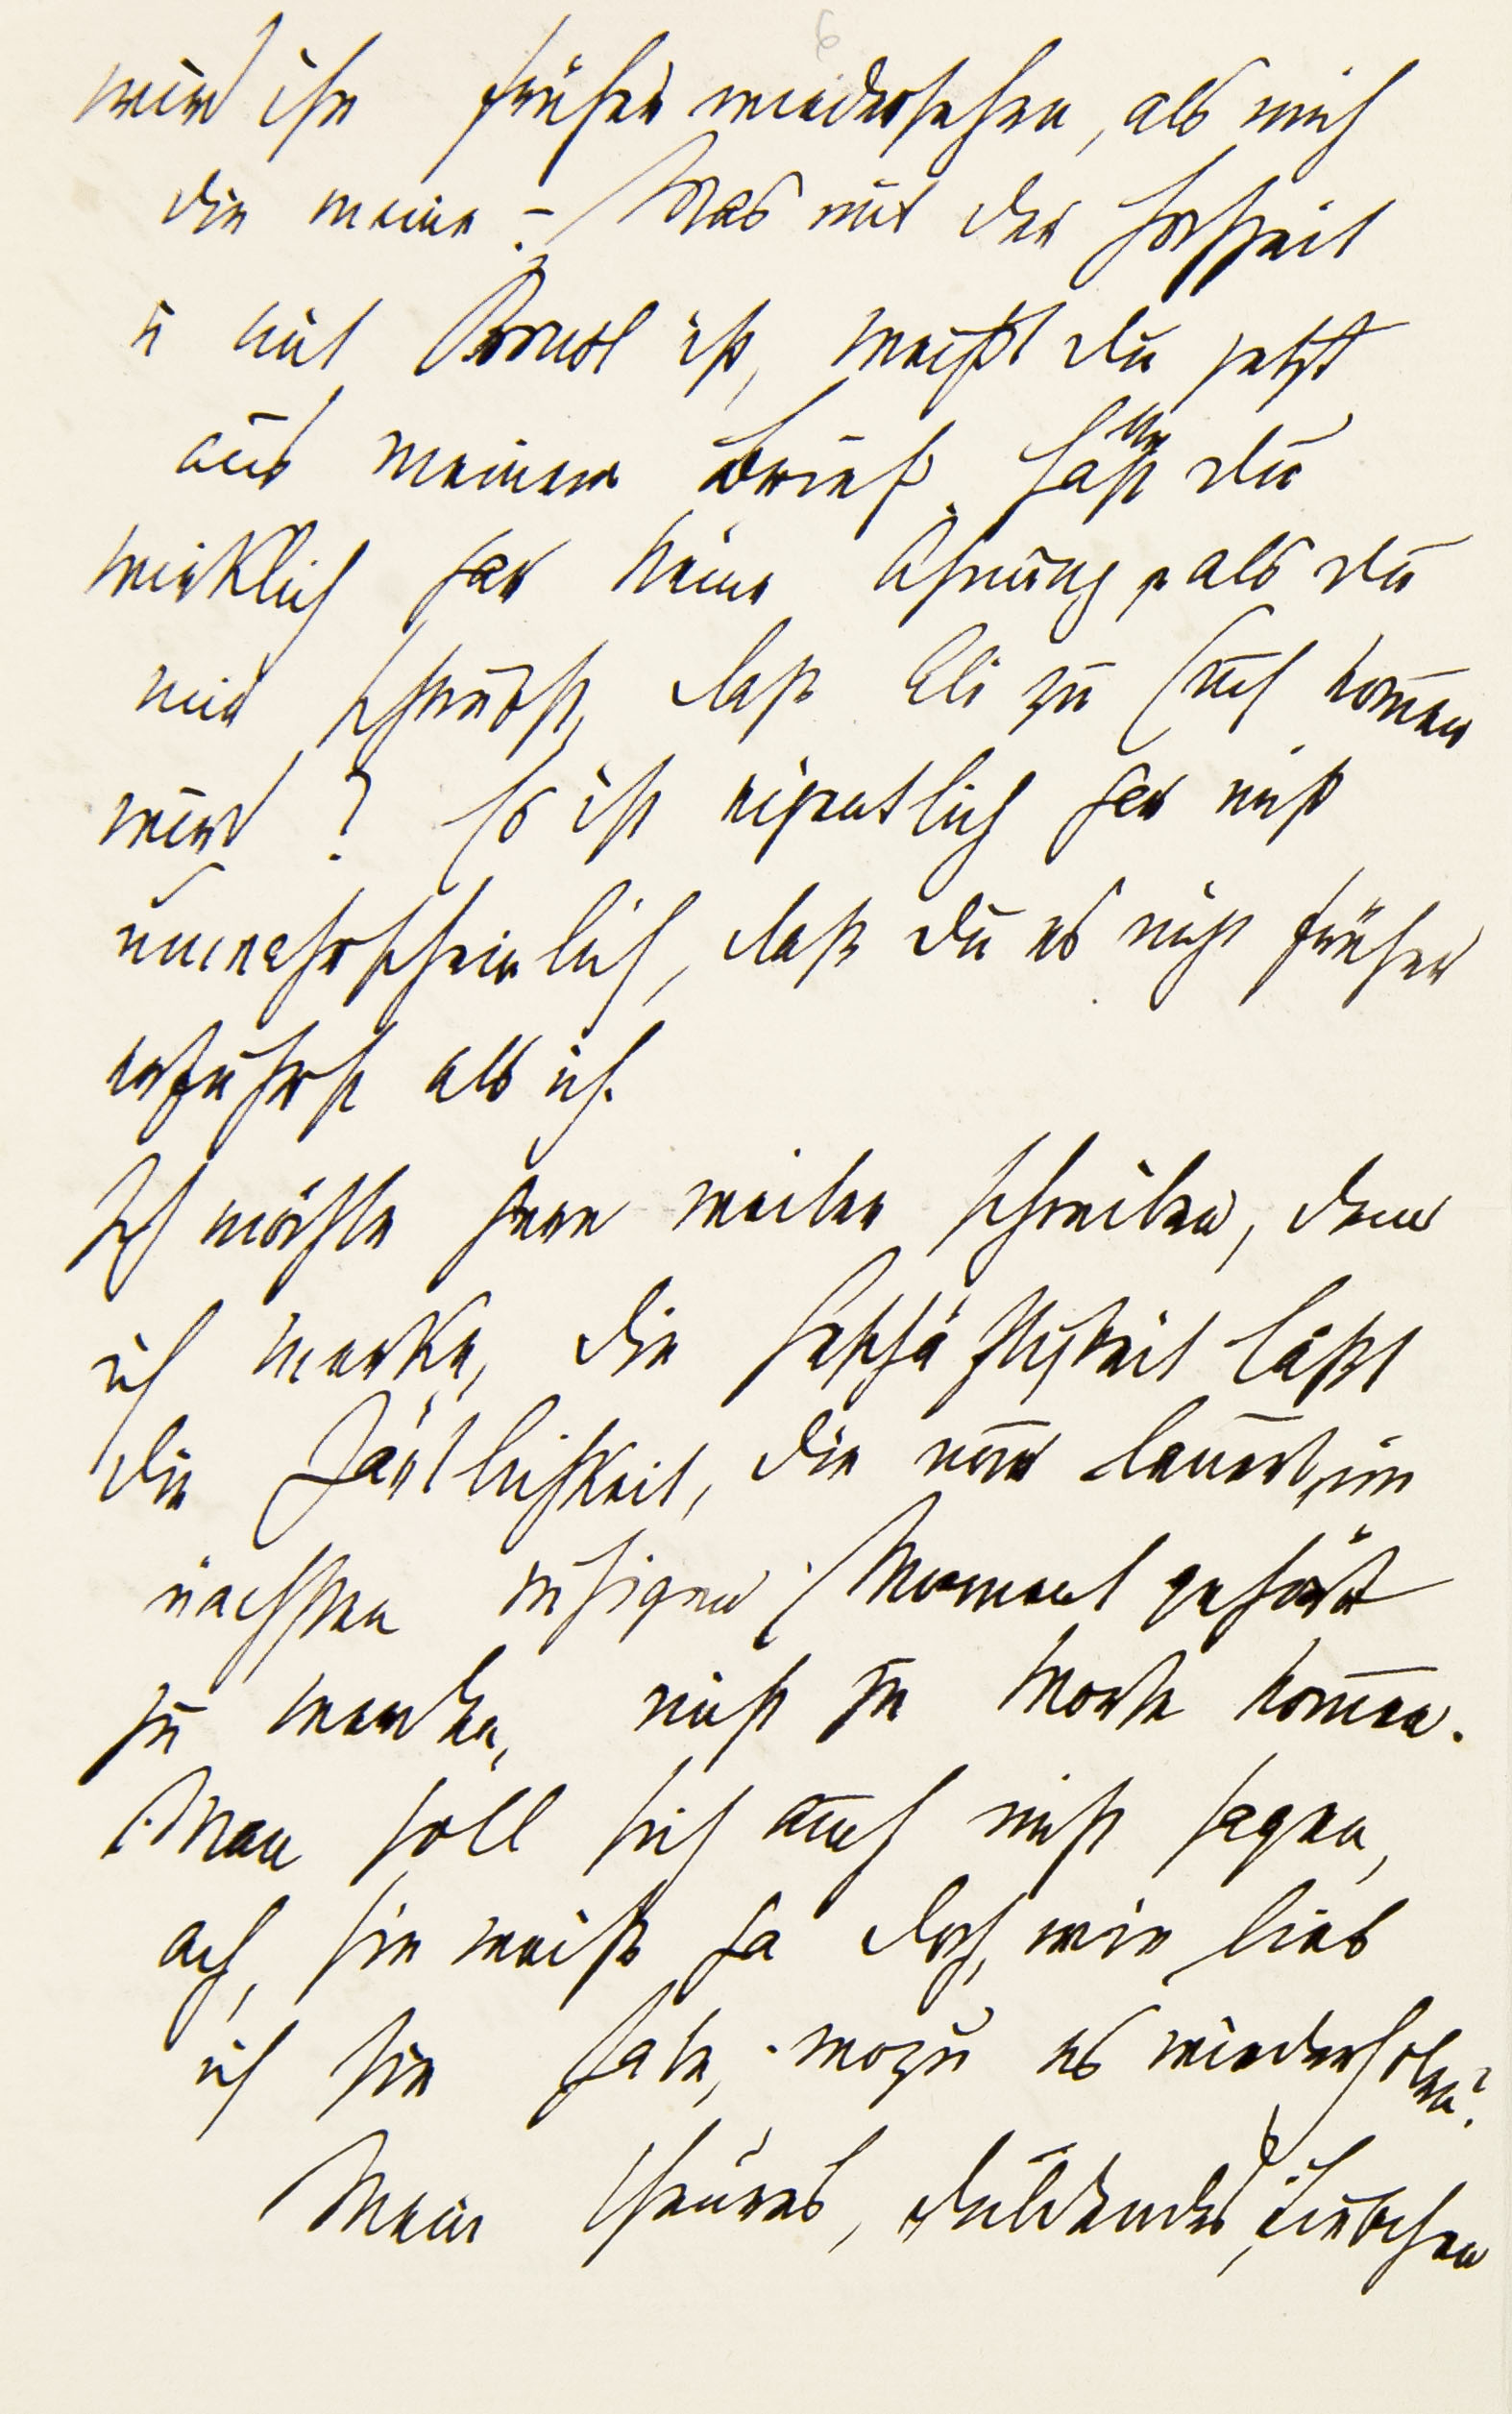 6
wird ihn früher wiedersehen, als mich
die meine. – Was mit der Hochzeit
u mit Brust ist, weißt du jetzt
aus meinem Brief. Hattest du
wirklich gar keine Ahnung, als du
mir schriebst, daß Eli zu Euch kommen
wird? Es ist eigentlich gar nicht
unwahrscheinlich, daß du es nicht früher
erfuhrst als ich.
Ich möchte gern weiter schreiben, denn
ich merke, die Geschäftigkeit läßt
die Zärtlichkeit, die nur lauert, im
nächsten ruhigen Moment gehört
zu werden, nicht zu Worte kommen.
Man soll sich auch nicht sagen,
ach, sie weiß ja doch, wie lieb
ich sie habe, wozu es wiederholen?
Mein theures, duldendes, Liebchen